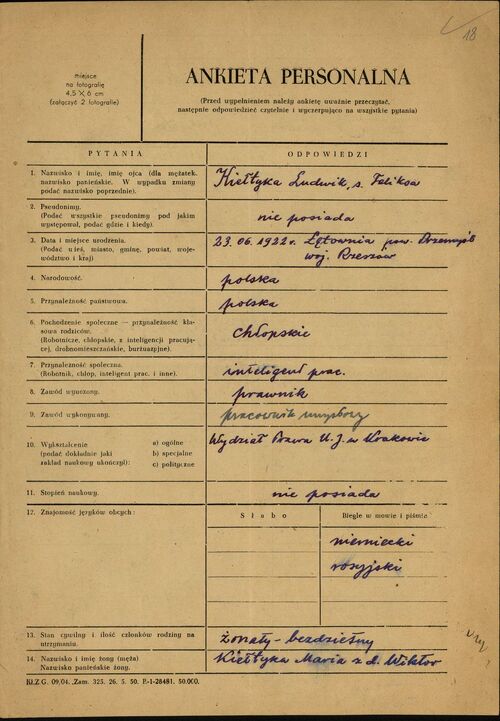 18
miejsce
na fotografię
4,5 X 6 cm
(załączyć 2 fotografie)
ANKIETA PERSONALNA
(Przed wypełnieniem należy ankietę uważnie przeczytać,
następnie odpowiedzieć czytelnie i wyczerpująco na wszystkie pytania)
PYTANIA
ODPOWIEDZI
1. Nazwisko i imię, imię ojca (dla mężatek,
nazwisko panieńskie. W wypadku zmiany
podać nazwisko poprzednie).
Kiełtyka Ludwik, s. Feliksa
2. Pseudonimy.
(Podać wszystkie pseudonimy pod jakim
występował, podać gdzie i kiedy).
nie posiada
3. Data i miejsce urodzenia.
(Podać wieś, miasto, gminę, powiat, woje-
wództwo i kraj)
23.06.1922 r. Łętownia pow. Przemyśl
woj. Rzeszów
4. Narodowość.
polska
5. Przynależność państwowa.
polska
6. Pochodzenie społeczne — przynależność kla-
sowa rodziców.
(Robotnicze, chłopskie, z inteligencji pracują-
cej, drobnomieszczańskie, burżuazyjne).
chłopskie
7. Przynależność społeczna.
(Robotnik, chłop, inteligent prac. i inne).
inteligent prac.
8. Zawód wyuczony.
prawnik
9. Zawód wykonywany.
pracownik umysłowy
10. Wykształcenie
(podać dokładnie jaki
zakład naukowy ukończył):
a) ogólne
b) specjalne
c) polityczne
Wydział Prawa U.J. w Krakowie
11. Stopień naukowy.
nie posiada
12. Znajomość języków obcych:
Słabo
Biegle w mowie i piśmie
niemiecki
rosyjski
13. Stan cywilny i ilość członków rodziny na
utrzymaniu.
żonaty - bezdzietny
14. Nazwisko i imię żony (męża)
Nazwisko panieńskie żony.
Kiełtyka Maria z d. Wiktor
KLZG. 09/04. Zam. 325. 26. 5. 50. P.-1-28481. 50.000.